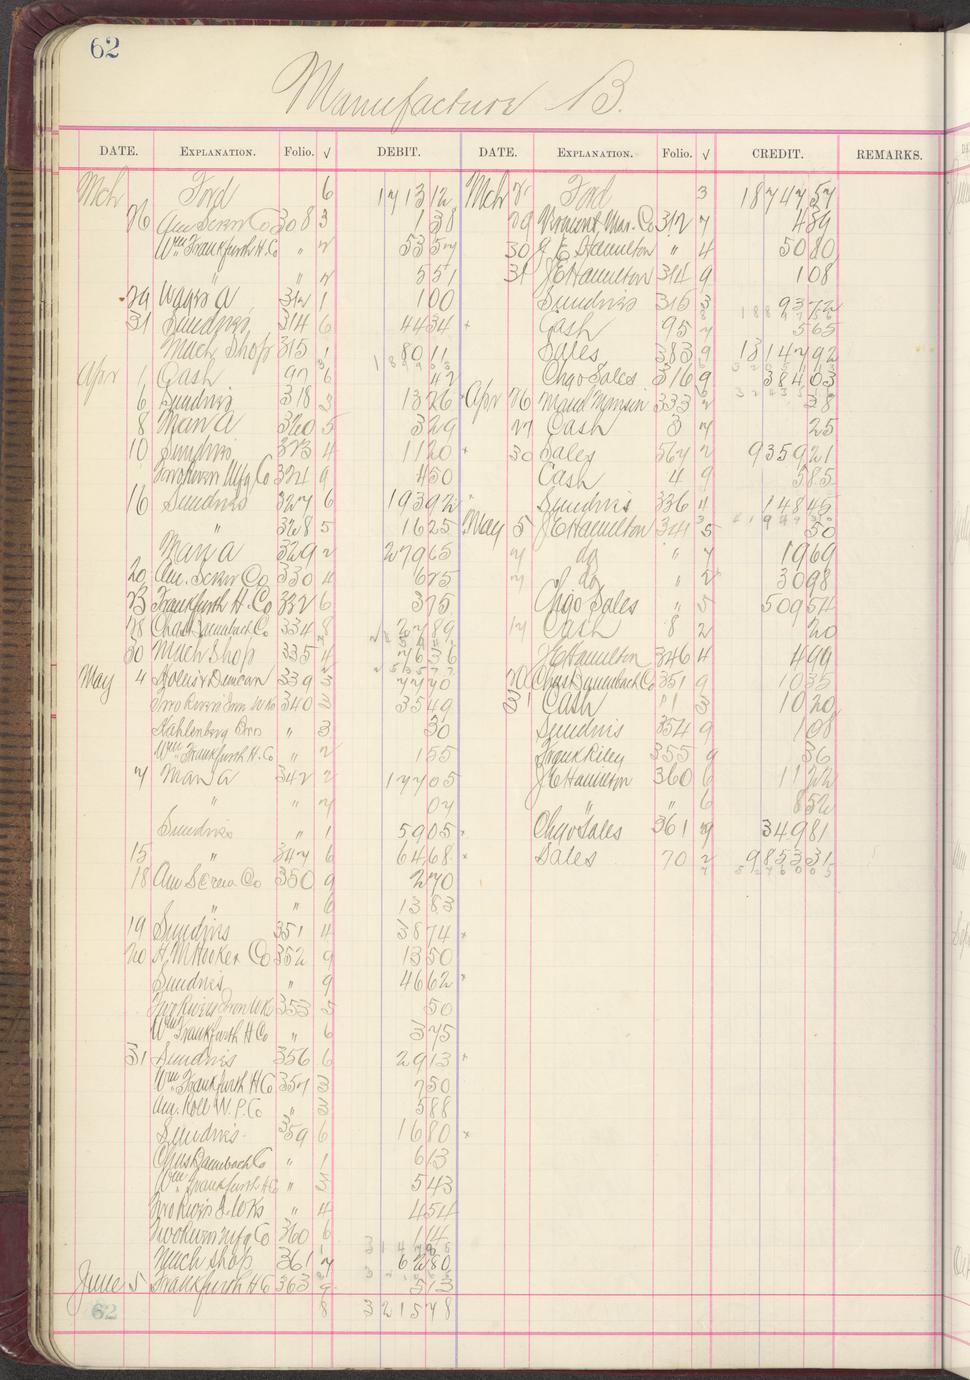 62
Manufacture B.
DATE. EXPLANATION. Folio. √ DEBIT. DATE. EXPLANATION. Folio. √ CREDIT. REMARKS.
Mch Ford 6 171312 Mch Ford 3 1874757
26 Am Screw Co 308 3 138 29 Mar. Co 312 7 489
Wm Frankfurth H. Co " 2 5357 30 J E Hamilton " 4 5080
" 2 551 31 J E Hamilton 314 9 108
29 Wages A 312 1 100 Sundries 315 3 9372
31 Sundries 314 6 4434 Cash 95 7 565
Mach. Shop 315 1 8011 Sales 383 9 1314792
Apr 1 Cash 97 6 42 Chgo Sales 316 9 38403
6 Sundries 318 3 1326 Apr 26 333 2 38
8 Man A 320 5 329 27 Cash 3 7 25
10 Sundries 323 4 1120 30 Sales 567 2 935921
Two Rivers Mfg Co 324 9 450 Cash 4 9 585
16 Sundries 327 6 19392 Sundries 336 4 14845
" 328 5 1625 May 5 J E Hamilton 341 5 50
Man A 329 2 27965 7 do " 7 1969
20 Am. Screw Co 330 4 625 7 do " 2 3098
23 Frankfurth H. Co 332 6 375 Chgo Sales " 5 50954
28 Chas Daumbach Co 334 8 2789 17 Cash 8 2 20
30 Mach Shop 335 4 7636 J E Hamilton 346 4 499
May 4 Duncan 339 3 7770 20 Chas Daumbach Co 351 9 1035
Two Rivers Iron Wks 340 3 3549 31 Cash 11 3 1020
Kahlenberg Bros " 3 30 Sundries 354 9 108
Wm Frankfurth H. Co " 2 155 Frank Riley 355 9 36
7 Man A 342 2 17705 J E Hamilton 360 6 1122
" " 7 07 " " 6 852
Sundries " 1 5905 Chgo Sales 361 9 34981
15 " 347 6 6468 Sales 70 2 985331
18 Am Screw Co 350 9 270
" " 6 1383
19 Sundries 351 4 3874
20 H. M Hooker Co 352 9 1350
Sundries " 9 4662
Two Rivers Iron Wks 353 5 50
Wm Frankfurth H Co " 6 375
31 Sundries 356 6 2913
Wm Frankfurth H Co 357 3 750
Am. Roll W. P. Co " 3 588
Sundries 359 6 1680
Chas Daumbach Co " 1 613
Wm Frankfurth H Co " 3 543
Two Rivers I. Wks " 4 454
Two Rivers Mfg Co 360 6 114
Mach Shop 361 7 6280
June 5 Frankfurth H Co 363 9 513
62 8 321578